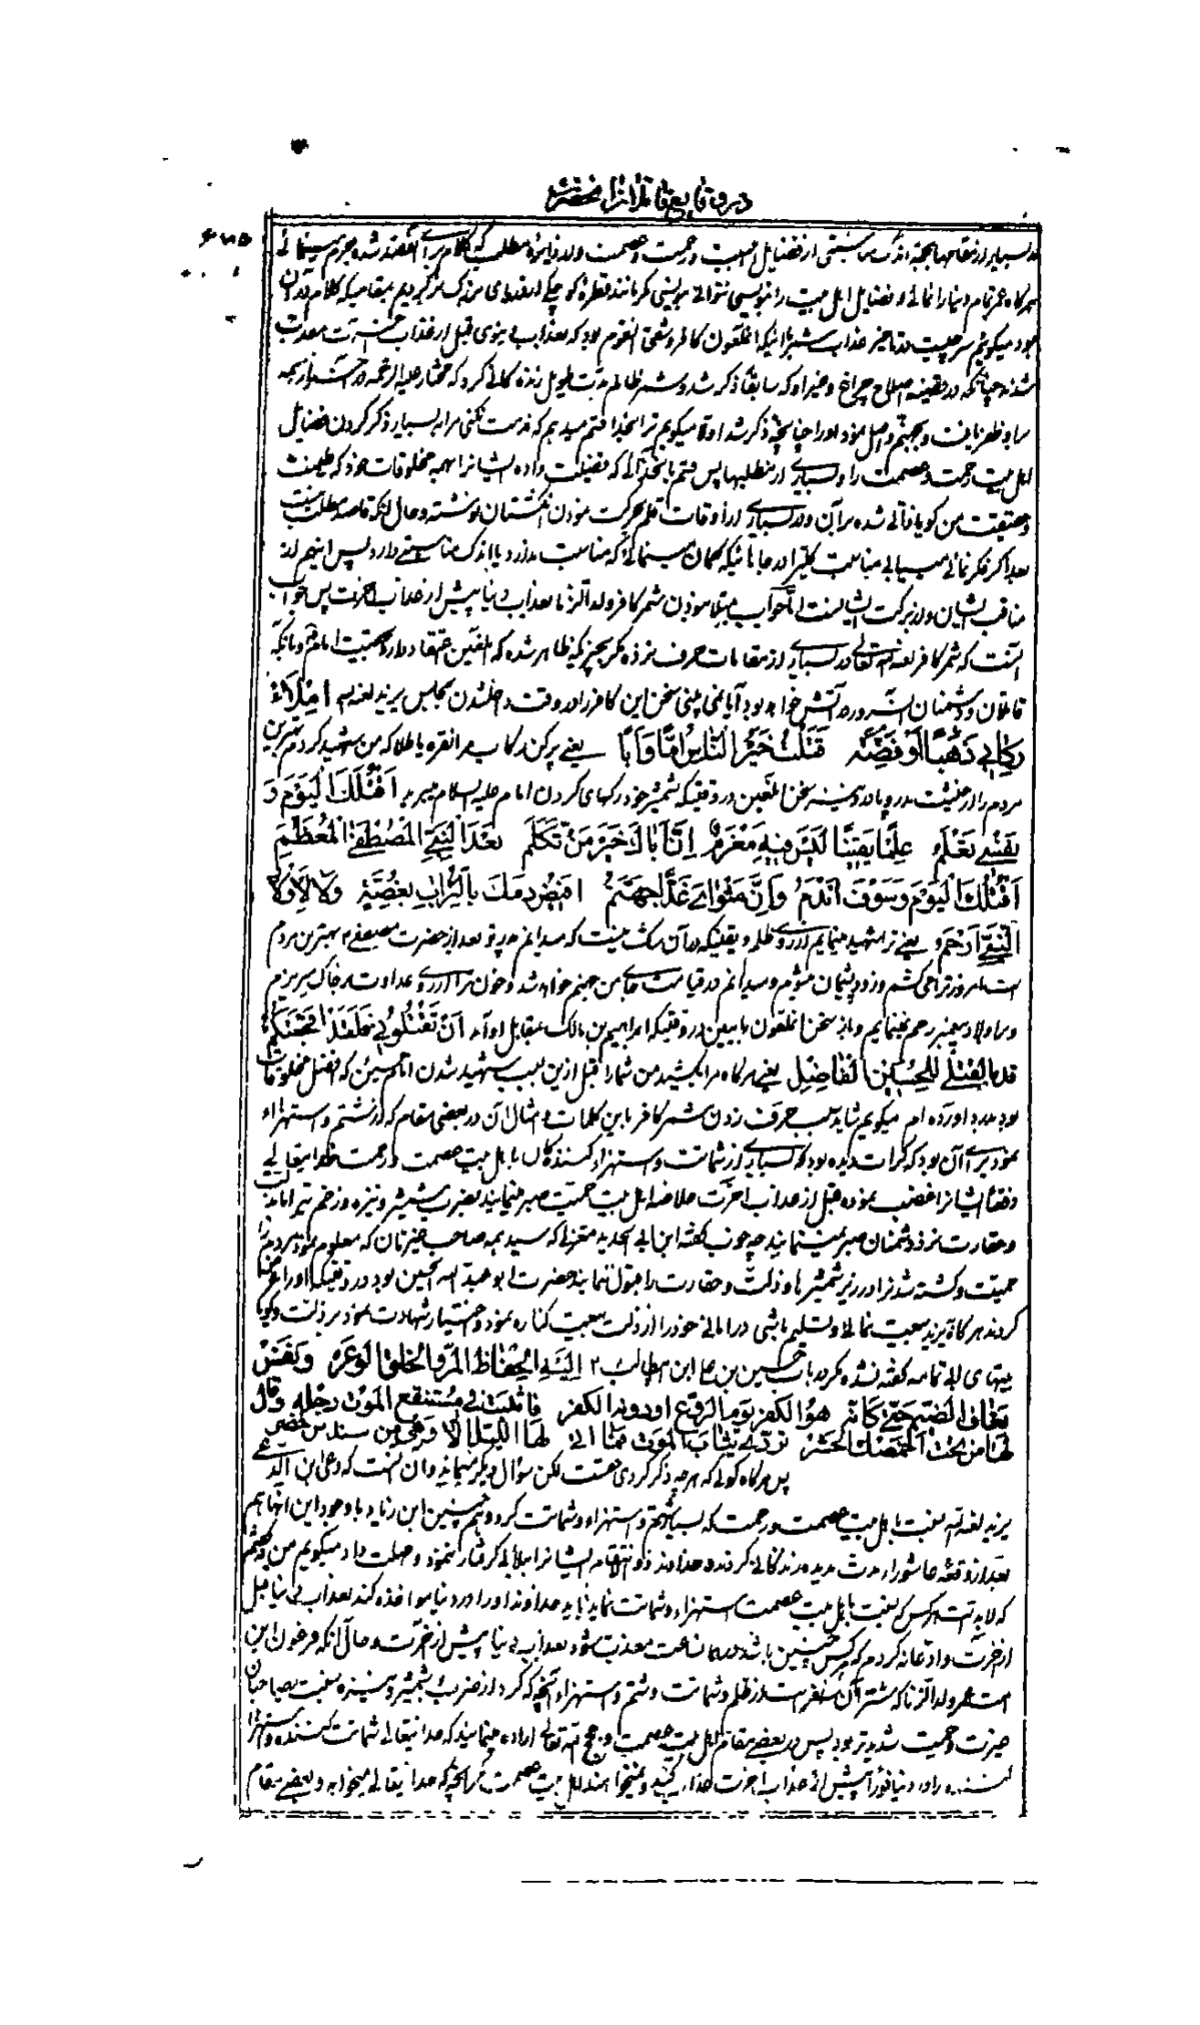 در وقایع قاتلان آنحضرت
۴۷۵
هرگاه عمر تمام دنیا را نمائی و فضایل اهل بیت را بنویسی نتوانی بنویسی مگر مانند قطره کوچکی از دریای بزرگ برگردیم بمقامیکه کلام در آن
بود میگویم سر چیست در تاخیر عذاب شمر با آنیکه آنملعون کافر و شقی القوم بود که بعذاب دنیوی قبل از عذاب آخرت معذب
شدند چنانکه در قضیه اصلاح چراغ و غیر او که سابقا ذکر شد و شمر ظالم مدت طویل زنده گانی کرد که مختار علیه الرحمه
بر او ظفر یافت و بجهنم واصل نمود او را چنانچه ذکر شد اولا میگویم ترا بخدا قسم میدهم که مذمت نکنی مرا به بسیار ذکر کردن فضایل
اهل بیت رحمت و عصمت را در بسیاری از مطلبها پس قسم بآنخدائی که فضیلت داده ایشانرا بهمه مخلوقات خود که طینت
و حقیقت من گویا فانی شده در آن و در بسیاری از اوقات قلم بحرکت نمودن انگشتان نوشته و حال آنکه قاصد مطلب نیست
بعد اگر فکر نمائی میابی مناسبت کثیر در جائیکه گمان مینمائی که مناسبت ندارد یا اندک مناسبتی دارد پس اینهم از
مناقب ایشان و از برکت ایشانست اما جواب مبتلا نبودن شمر کافر ولد الزنا بعذاب دنیا پیش از عذاب آخرت پس جواب
آنست که شمر کافر لعنه الله تعالی در بسیاری از مقامات حرف نزده مگر بچیزیکه ظاهر شده که بیقین اعتقاد دارد بحقیت امام و بآنکه
قاتلان و دشمنان آن سرور در آتش خواهد بود آیا نمی بینی سخن این کافر را در وقت داخلشدن بمجلس یزید لعنه الله املاء
رکابی ذهبا او فضه قتلت خیر الناس اما و ابا یعنی پر کن رکاب مرا نقره یا طلا که من شهید کردم بهترین
مردم را از حیثیت مدر و پدر و همچنین سخن آنلعین در وقتیکه شمشیر خود رکهای گردن امام علیه السلام میبرید اقتلک الیوم و
نفسی تعلم علما یقینا لیس فیه مغرم ان اباک خیر من تکلم بعد النبی المصطفی المعظم
اقتلک الیوم و سوف اندم و ان مثوای غدا جهنم امض دمک بالتراب بغضه و لا لاولاد
النبی ارحم یعنی ترا شهید مینمایم از روی علم و یقینیکه در آن شک نیست که میدانم پدر تو بعد از حضرت مصطفی بهترین مردم
است امروز ترا می کشم و زود پشیمان میشوم و میدانم در قیامت جای من جهنم خواهد شد و خون ترا از روی عداوت بر خاک میریزم
و بر اولاد پیغمبر رحم نمینمایم و باز سخن آنملعون را ببین در وقتیکه ابراهیم بن مالک بمقابل او آمد ان تقتلونی فلقد افجعتکم
قدما بقتلی للحسین الفاضل یعنی هرگاه مرا بکشید من شما را قبل از این بسبب شهید شدن امام حسین که افضل مخلوقات
بود بدرد آورده ام میگویم شاید سبب حرف زدن شمر کافر باین کلمات و امثال آن در بعضی مقام که از شتم و استهزاء
نمود برای آن بود که کرات دیده بود که بسیاری از شماتت و استهزاء کنندگان باهل بیت عصمت و رحمت خدایتعالی
دفعة ایشانرا غضب نموده قبل از عذاب آخرت خلاصه اهل بیت حمیت صبر مینمایند بضرب شمشیر و نیزه و زخم تیر اما بذلت
و حقارت نزد دشمنان صبر نمینمایند چه خوب گفته ابن ابی الحدید معتزلی که سید همه صاحب غیرتان که معلوم نمود بمردم
حمیت و کشته شدنرا در زیر شمشیر تا ذلت و حقارت را قبول ننمایند حضرت ابو عبد الله الحسین بود در وقتیکه او را عرض
کردند هرگاه بیزید بیعت نمائی و تسلیم باشی در امانی خود را از ذلت بیعت کناره نمود و اختیار شهادت نمود بر ذلت و گویا
بیتهای ابی تمامه گفته نشده مگر در باب حسین بن علی ابن ابیطالب ۲ الیه الحفاظ المر و الخلق الوعر و نفس
تعاف الضیم حتی کانه هو الکفر یوم الروع او دونه الکفر فاثبت فی مستنقع الموت رجله و قال
لها من تحت اخمصک الحشر تردی ثیاب الموت فما اتی لها اللیل الا و هی من سندس خضر
پس هرگاه گوئی که هر چه ذکر کردی حقست لکن سؤال دیگر میماند و آن اینست که دعی بن الدعی
یزید لعنه الله نسبت باهل بیت عصمت و رحمت که بسیار شتم و استهزاء و شماتت کرد و همچنین ابن زیاد با وجود این آنها هم
بعد از وقعه عاشورا مدت مدیده زندگانی کردند و خداوند ذو انتقام ایشانرا ببلائی گرفتار ننمود و مهلت داد میگویم من
که لابد است هرکس که نسبت باهل بیت عصمت استهزاء و شماتت نماید باید خداوند او را در دنیا مواخذه کند بعذاب دنیا قبل
از آخرت و ادعا نکردم که هرکس چنین باشد در همان ساعت معذب شود بعذاب دنیا پیش از آخرت و حال آنکه فرعون این
امت عمر ولد الزنا که شر آن بیشتر است از ظلم و شماتت و شتم و استهزاء آنچه که کرد از ضرب شمشیر و نیزه نسبت بصاحبان
غیرت و حمیت شدیدتر بود پس در بعضی مقام اهل بیت عصمت و حجج الله تعالی اراده مینمایند که خدایتعالی شماتت کننده و استهزا
کننده را در دنیا فورا پیش از عذاب آخرت عذاب کنید و نمیخواهند اهل بیت عصمت مگر آنچه که خدایتعالی میخواهد و بعضی مقام